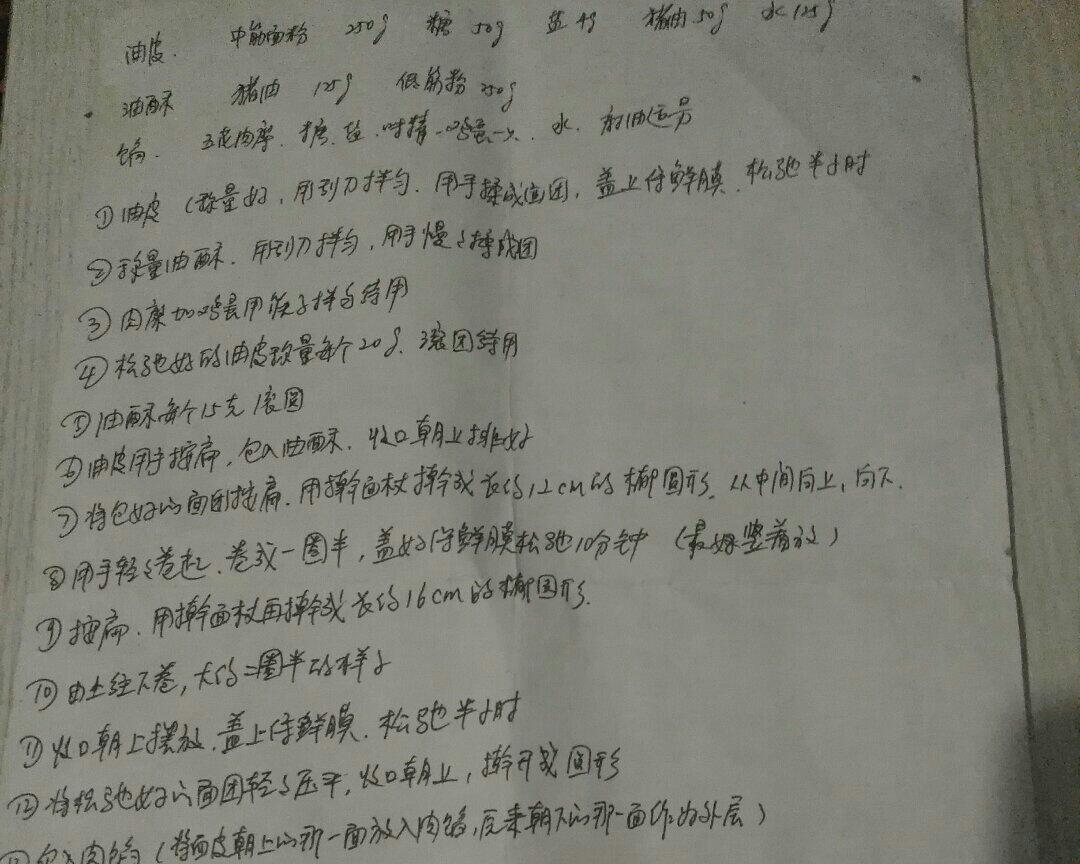 油皮. 中筋面粉 250g 糖 50g 盐 4g 猪油 50g 水 125g
油酥 猪油 125g 低筋粉 250g
馅. 五花肉糜. 糖. 盐. 味精. 鸡蛋一只. 水.
① 油皮(称量好, 用刮刀拌匀. 用手揉成面团, 盖上保鲜膜. 松弛半小时
② 称量油酥. 用刮刀拌匀, 用手慢慢揉成团
③ 肉糜加鸡蛋用筷子拌匀待用
④ 松弛好的油皮称量每个20g. 滚团待用
⑤ 油酥每个15克 滚圆
⑥ 油皮用手按扁, 包入油酥. 收口朝上排好
⑦ 将包好的面团按扁. 用擀面杖擀成长约12cm的椭圆形. 从中间向上, 向下.
⑧ 用手轻轻卷起. 卷成一圈半, 盖好保鲜膜松弛10分钟 (最好竖着放)
⑨ 按扁. 用擀面杖再擀成长约16cm的椭圆形.
⑩ 由上往下卷, 大约二圈半的样子
⑪ 收口朝上摆放. 盖上保鲜膜. 松弛半小时
⑫ 将松弛好的面团轻轻压平, 收口朝上, 擀开成圆形
包入肉馅 (将面皮朝上的那一面放入肉馅, 原来朝下的那一面作为外层)